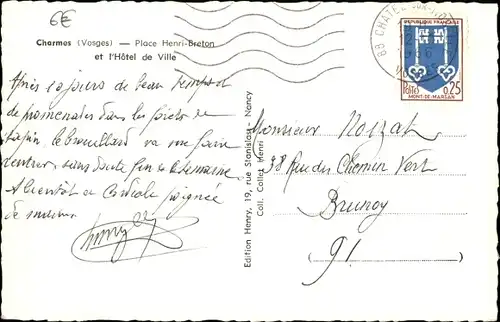 6€
Charmes (Vosges) — Place Henri-Breton
et l'Hôtel de Ville
88 CHATEL-SUR-
RÉPUBLIQUE FRANÇAISE
Postes 0,25
MONT-DE-MARSAN
Après 10 jours de beau temps et
de promenades dans les forêts de
sapin, le brouillard va me faire
rentrer, sans doute fin de semaine.
A bientôt et Cordiale poignée
de mains
Edition Henry, 19, rue Stanislas - Nancy
Coll. Collet Henri
Monsieur Nozzat
38 Rue du Chemin Vert
Brunoy
91